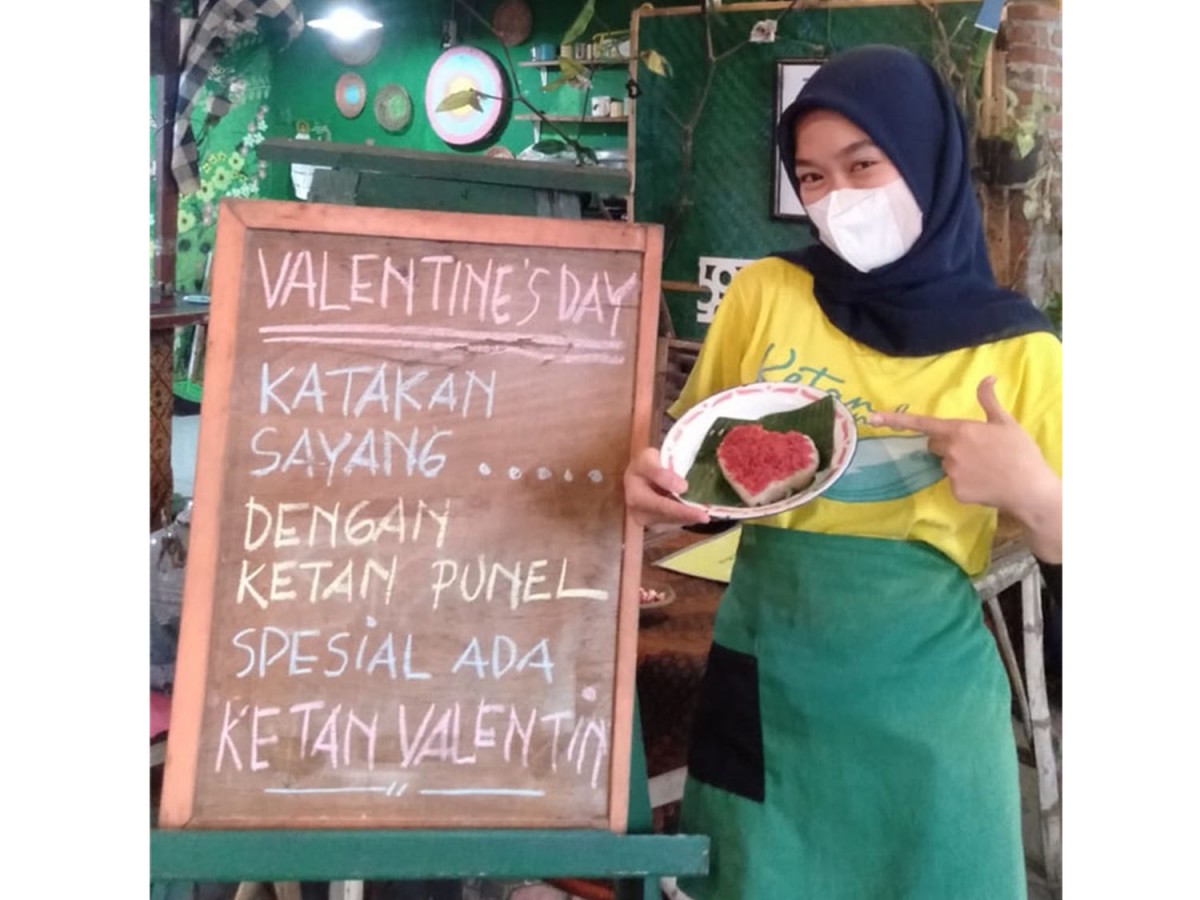 VALENTINE'S DAY
KATAKAN
SAYANG .....
DENGAN
KETAN PUNEL
SPESiAL ADA
KETAN VALENTiN
Ketan